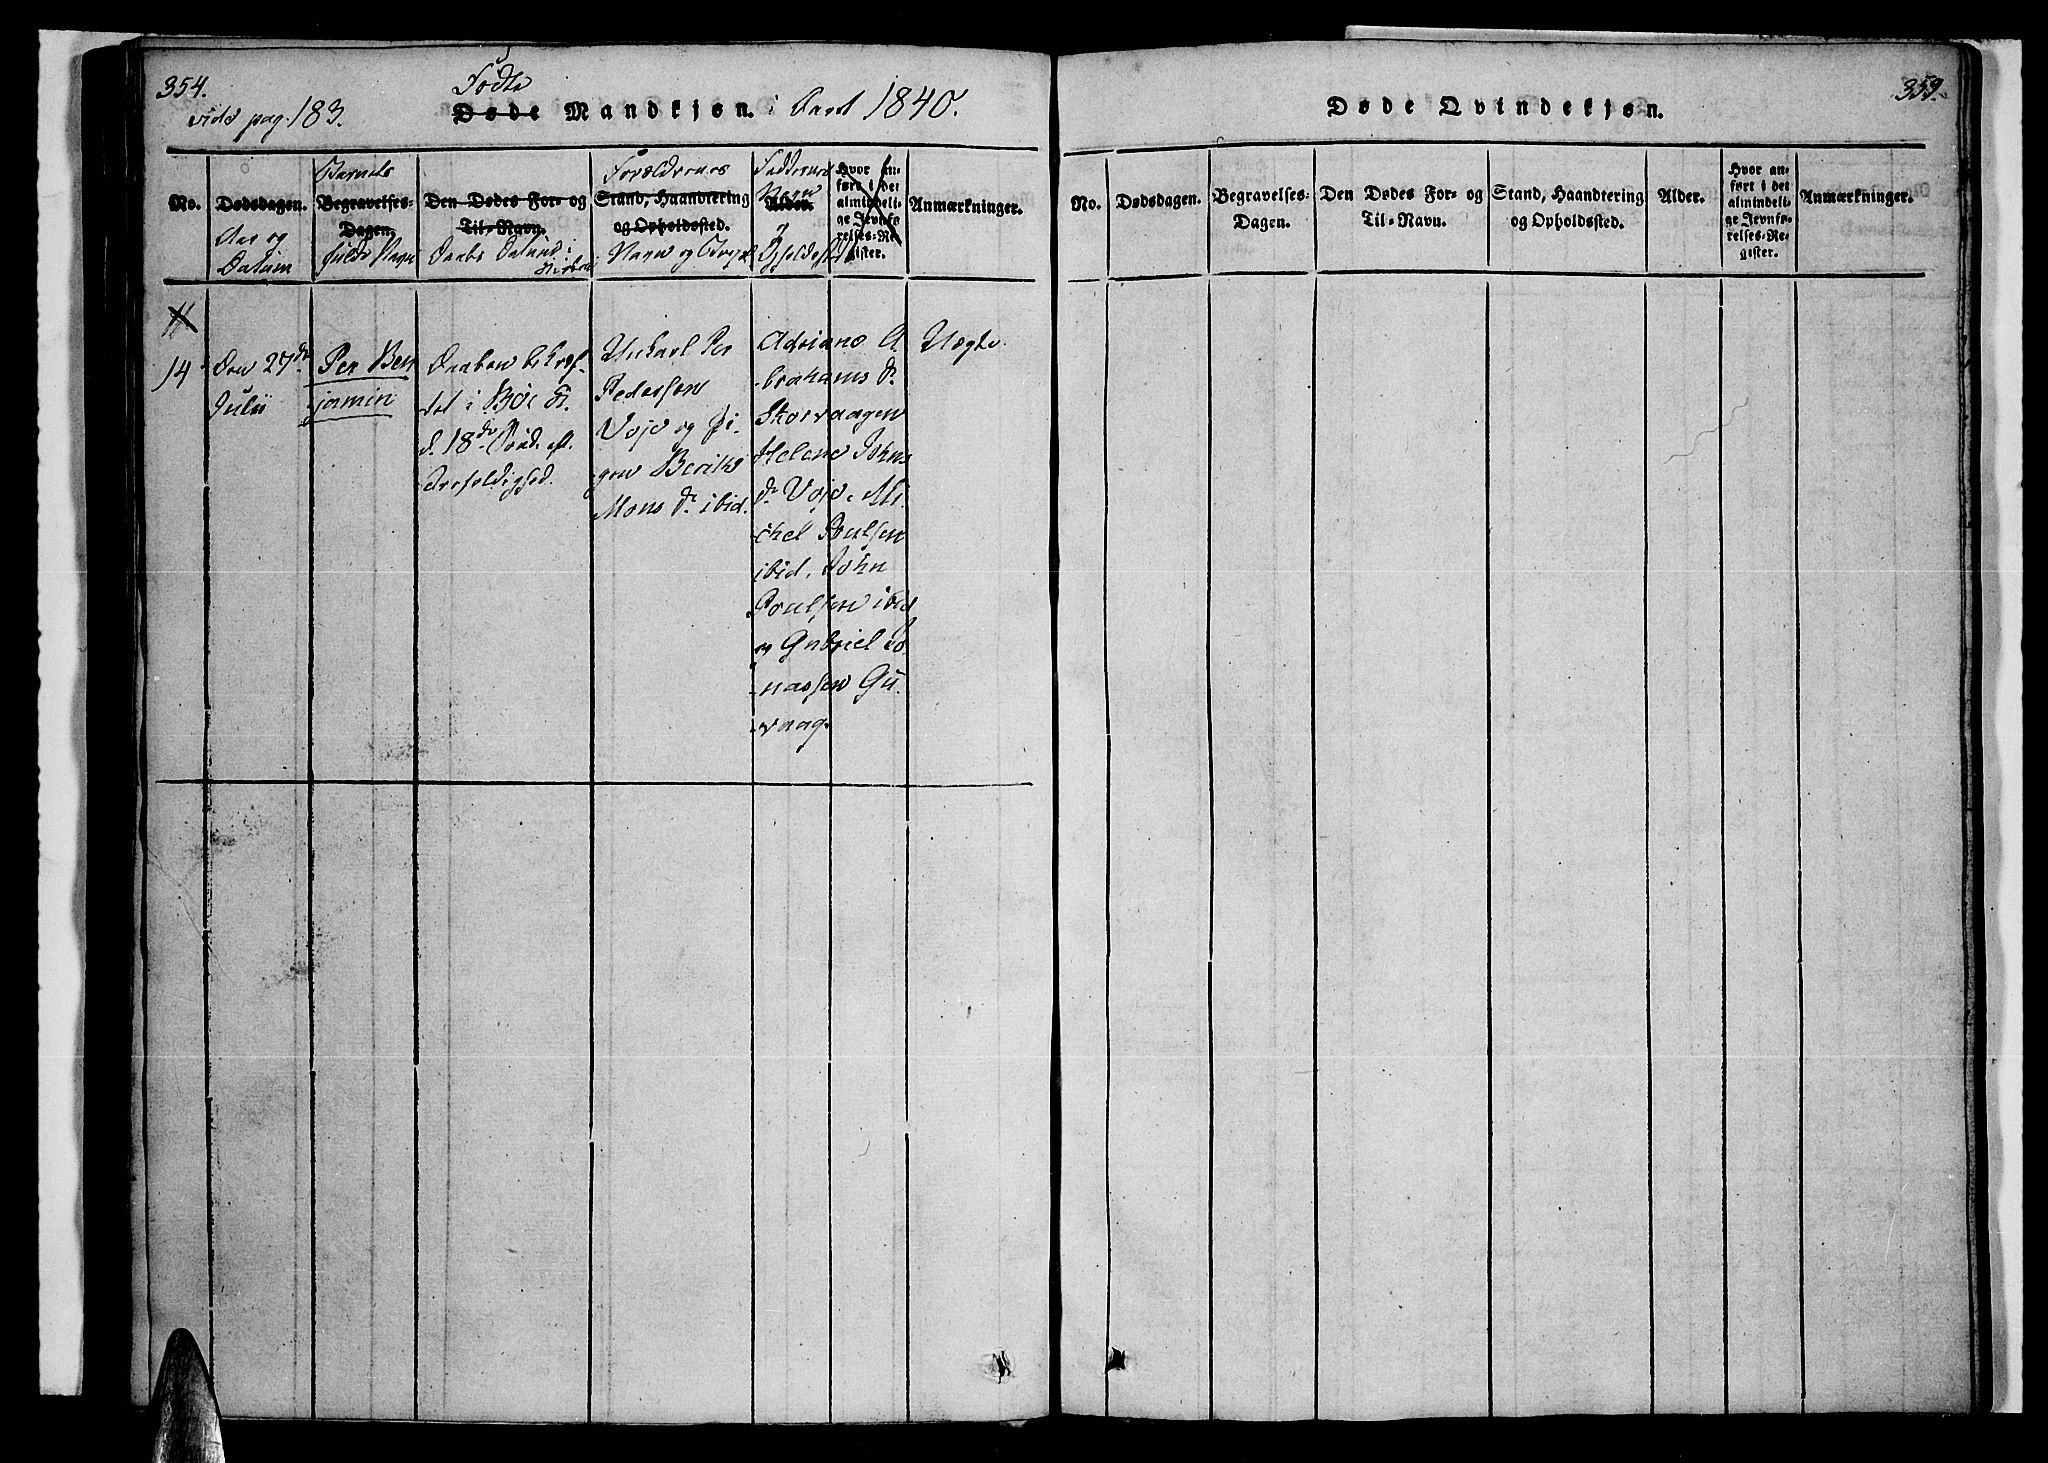 354.
vide pag. 183.
Fødte
Døde Mandkjøn. i Aaret 1840.
No.
Dødsdagen.
Aar og
Datum
Barnets
Begravelses-
Dagen.
fulde Navn
Den Dødes For- og
Til-Navn.
Daabs Datum i
Kirken
Forældrenes
Stand, Haandtering
og Opholdssted.
Navn og
Faddernes
Navn
Alder.
og
Opholdssted
Hvor an-
ført i det
almindeli-
ge Jevnfø-
relses-Re-
gister.
Anmærkninger.
14
Den 27de
Julii
Per Ben
jamin
Daaben bekræf-
tet i Bøe K.
d. 18de Sønd. eft.
Trefoldighed.
Unkarl Per
Pedersen
Voje og Pi-
gen Berithe
Mons d. ibid.
Adriane A
brahams d.
Skorvaagen
Helene Johns
d. Voje, Mi-
chel Poulsen
ibid, John
Poulsen ibid
og Gabriel Jo-
nassen Gu-
vaag.
Uægte.
359.
Døde Qvindekjøn.
No.
Dødsdagen.
Begravelses-
Dagen.
Den Dødes For- og
Til-Navn.
Stand, Haandtering
og Opholdssted.
Alder.
Hvor an-
ført i det
almindeli-
ge Jevnfø-
relses-Re-
gister.
Anmærkninger.